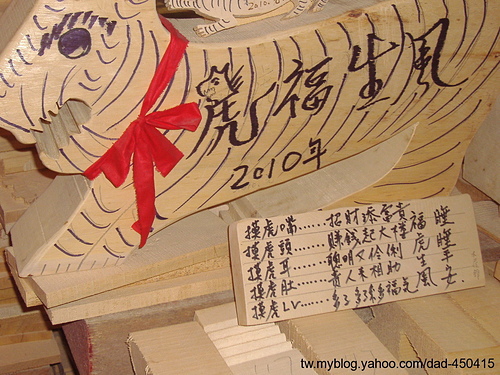 虎福生風
2010年
摸虎嘴......招財添富貴
摸虎頭......賺錢起大樓
摸虎耳......聰明又伶俐
摸虎肚......貴人來相助
摸虎LV......多子多孫多福氣
福虎生風
睡睡平安.
tw.myblog.yahoo.com/dad-450415